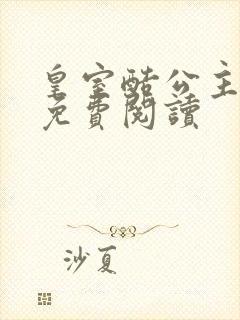 皇室酷公主
免費閱讀
沙夏